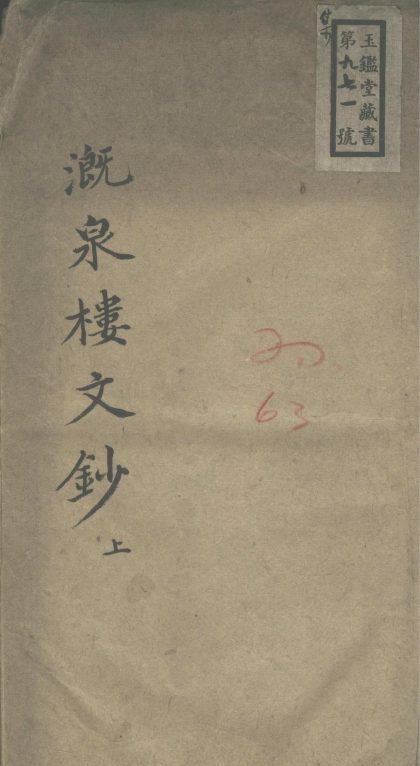 玉鑑堂藏書
第九七一號
溉泉樓文鈔上
63